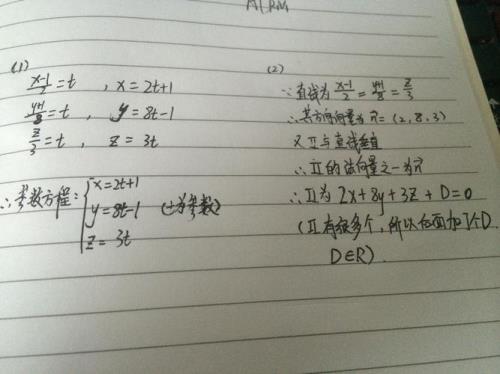 (1)
x-1/2=t , x=2t+1
y+1/8=t , y=8t-1
z/3=t , z=3t
∴参数方程:{x=2t+1
y=8t-1 (t为参数)
z=3t
(2)
∵直线为 x-1/2=y+1/8=z/3
∴其方向向量为 n=(2,8,3)
又π与直线垂直
∴π的法向量之一为n
∴π为 2x+8y+3z+D=0
(π有很多个,所以后面加了个D.
D∈R)